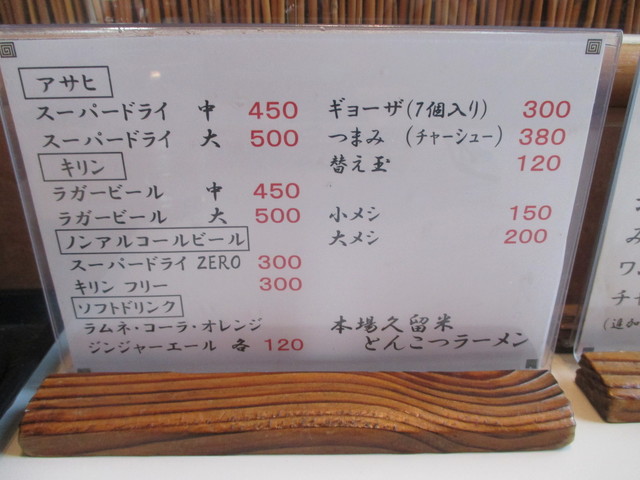 アサヒ
スーパードライ 中 450
スーパードライ 大 500
キリン
ラガービール 中 450
ラガービール 大 500
ノンアルコールビール
スーパードライ ZERO 300
キリン フリー 300
ソフトドリンク
ラムネ・コーラ・オレンジ
ジンジャーエール 各 120
ギョーザ(7個入り) 300
つまみ (チャーシュー) 380
替え玉 120
小メシ 150
大メシ 200
本場久留米
とんこつラーメン
み
ワ
チ
(追加